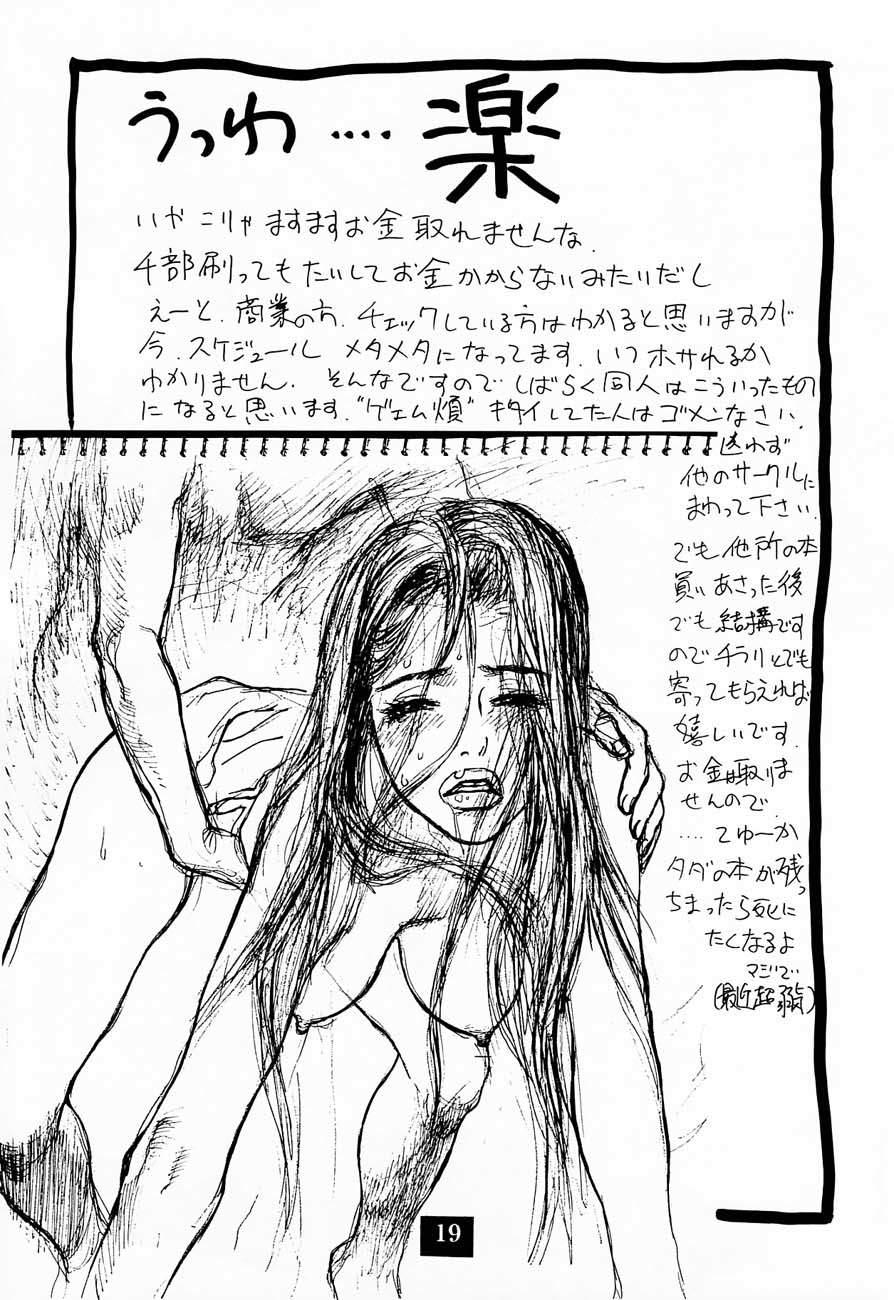 うっわ‥‥楽
いや こりゃ ますますお金 取れませんな.
千部刷ってもたいしてお金かからないみたいだし
えーと、商業の方、チェックしている方はわかると思いますが
今、スケジュール メタメタになってます. いつ ホサれるか
わかりません. そんなですので しばらく同人はこういったもの
になると思います. “ゲェム煩” キタイしてた人はゴメンなさい.
迷わず
他のサークルに
まわって下さい.
でも 他所の本
買いあさった後
でも 結構です
のでチラリとでも
寄ってもらえれば
嬉しいです.
お金は取りま
せんので.
‥‥てゅーか
タダの本が残っ
ちまったら死に
たくなるよ
マジで
19